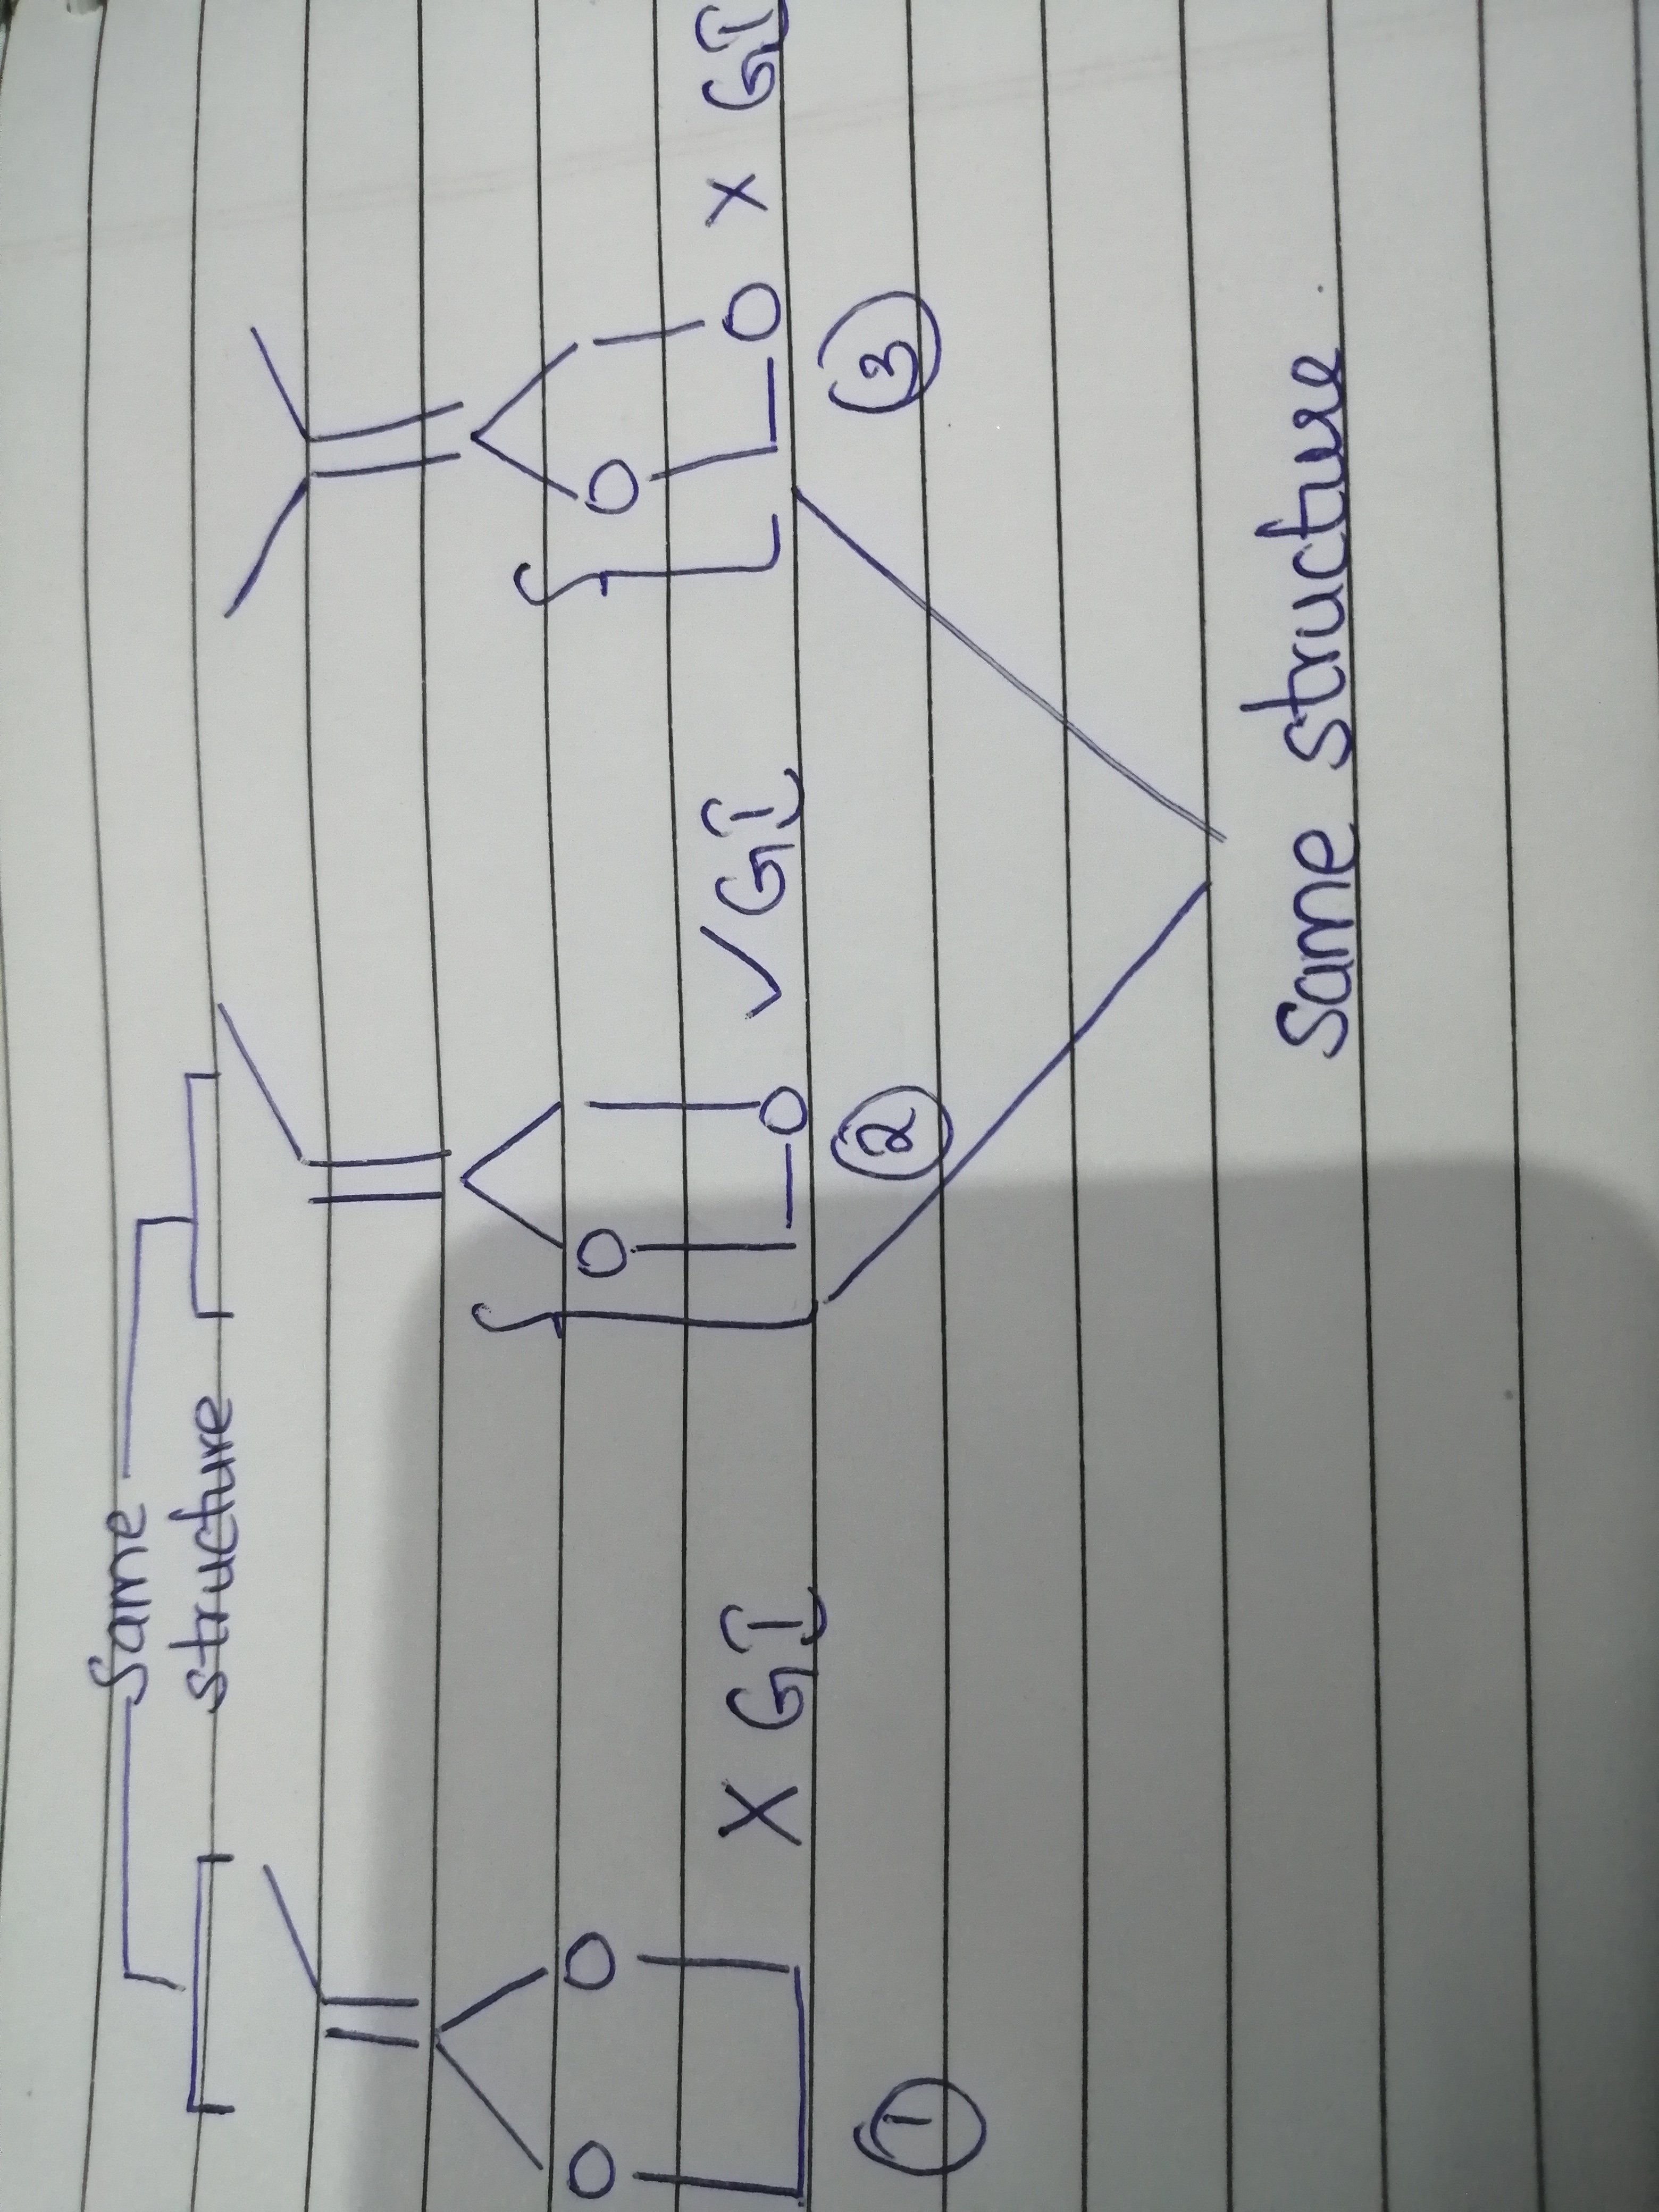 Same
structure
O O O O
X GI O ✓GI O X GI
① ② ③
Same structure